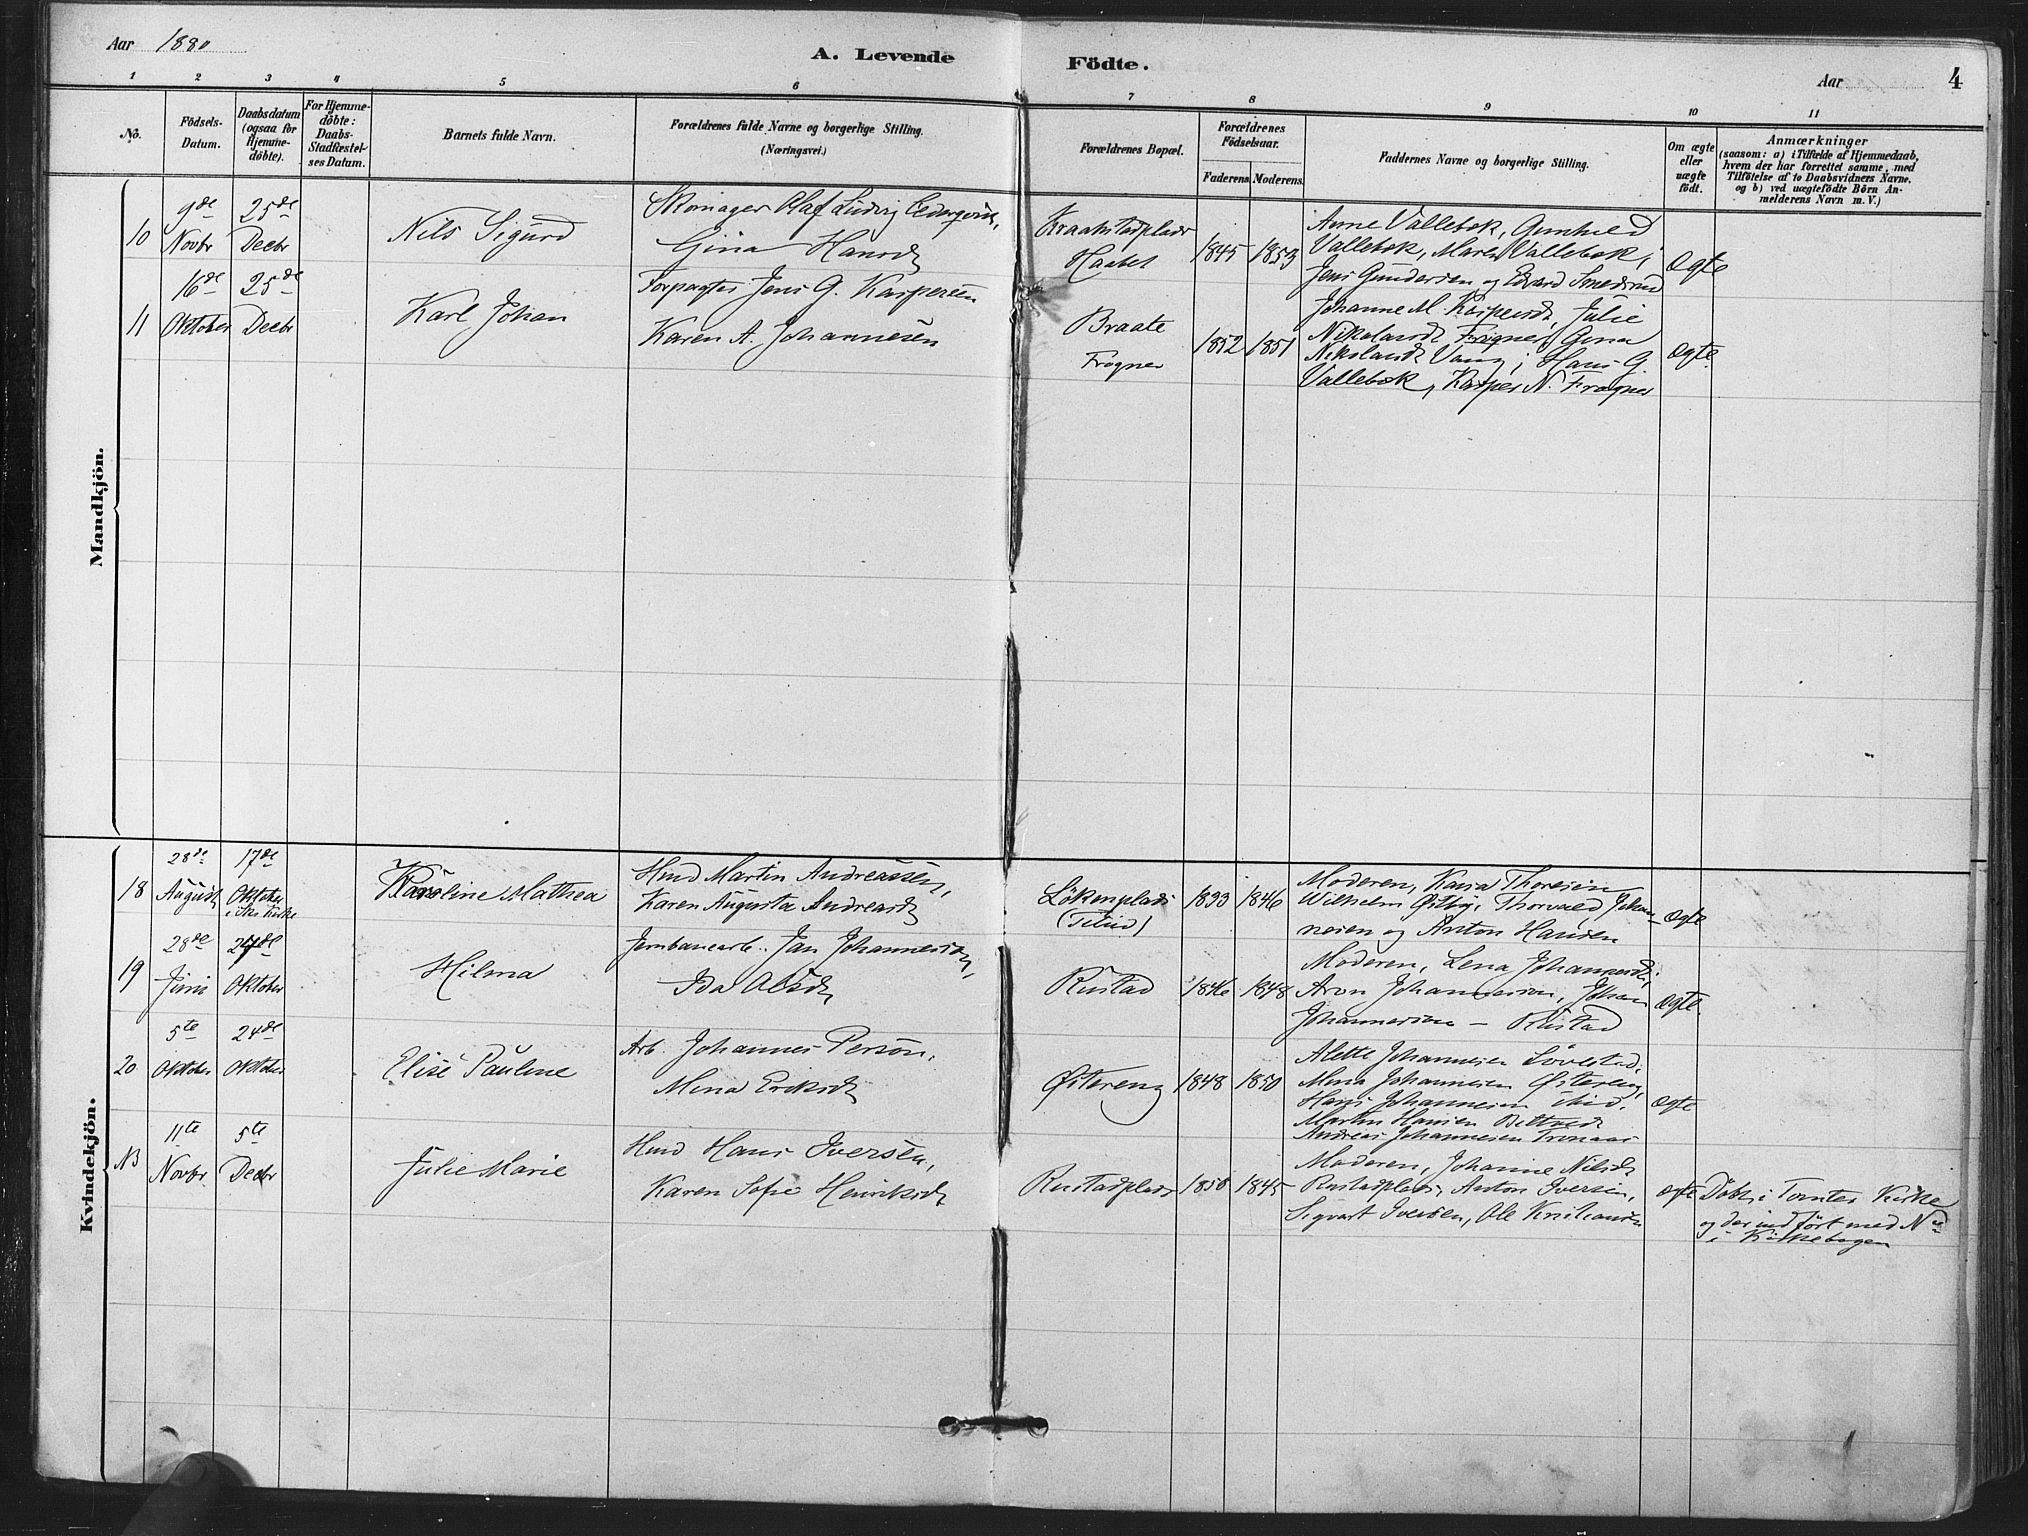 Aar 1880
A. Levende Födte.
Aar
4
1 2 3 4 5 6 7 8 9 10 11
No.
Födsels-
Datum.
Daabsdatum
(ogsaa for
Hjemme-
döbte).
For Hjemme-
döbte:
Daabs-
Stadfæstel-
ses Datum.
Barnets fulde Navn.
Forældrenes fulde Navne og borgerlige Stilling.
(Næringsvei.)
Forældrenes Bopæl.
Forældrenes
Födselsaar.
Faderens Moderens.
Faddernes Navne og borgerlige Stilling.
Om ægte
eller
uægte
födt.
Anmærkninger
(saasom: a) i Tilfælde af Hjemmedaab,
hvem der har forrettet samme, med
Tilföielse af to Daabsvidners Navne.
og b) ved uægtefödte Börn An-
melderens Navn m. V.)
Mandkjön.
10
9de
Novbr
25de
Decbr
Nils Sigurd
Skomager Olaf Ludvig
Gina Hansdt
Kraakstadplads
Haabet
1845 1853
Anne Vallebek, Gunhild
Vallebek, Maren Vallebek;
Jens Gundersen og Edvard Smedsrud
Ægte
11
16de
Oktober
25de
Decbr
Karl Johan
Forpagter Jens G. Kaspersen
Karen A. Johannesen
Braate
Frogner
1852 1851
Johanne M. Kaspersdt, Julie
Nikolaisdt Frogner, Gina
Nikolaisdt Vang; Hans G.
Vallebek, Kasper N. Frogner
Ægte.
Kvindekjön.
18
28de
August
17de
Oktober
i Aas Kirke
Karoline Mathea
Hmd Martin Andreassen,
Karen Augusta Andreasdt
Lökenplads
1833 1846
Moderen, Karia Thoresen
Wilhelm Østby, Thorvald Johan-
nesen og Anton Hansen
Ægte
19
28de
Juni
24de
Oktober
Hilma
Jernbanearb. Jan Johannesson,
Ida Olsdt
Rustad
1846 1848
Moderen, Lena Johannesdt;
Aron Johannesson, Johan
Johannesson – Rustad
Ægte.
20
5te
Oktober
24de
Oktober
Elise Pauline
Arb. Johannes Person,
Mina Eriksdt
Østereng
1848 1850
Alette Johannesen Lövestad,
Mina Johannesen Østereng,
Hans Johannesen ibid.
Martin Hansen
Andreas Johannesen Tronaas
Ægte
NB
11te
Novbr.
5te
Decbr
Julie Marie
Hmd Hans Iversen,
Karen Sofie Henriksdt
Rustadplads
1850 1845
Moderen, Johanne Nilsdt
Rustadplads, Anton Iversen,
Sigvart Iversen, Ole Kristiansen
Ægte
Döbt i Tomter Kirke
og der indfört med No
i Kirkebogen